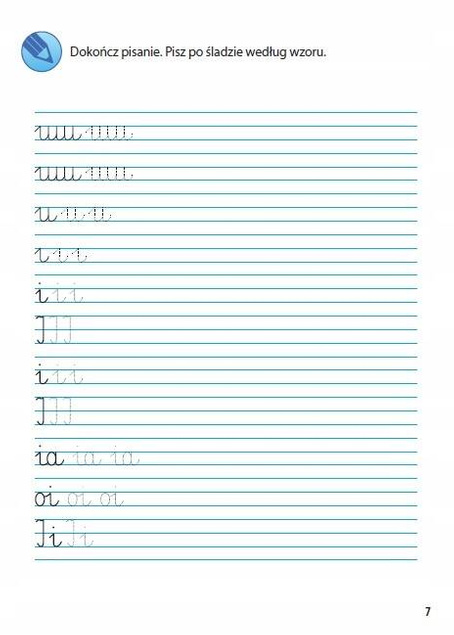 Dokończ pisanie. Pisz po śladzie według wzoru.
i i i
J J J
i i i
J J J
ia ia ia
oi oi oi
Ji Ji
7